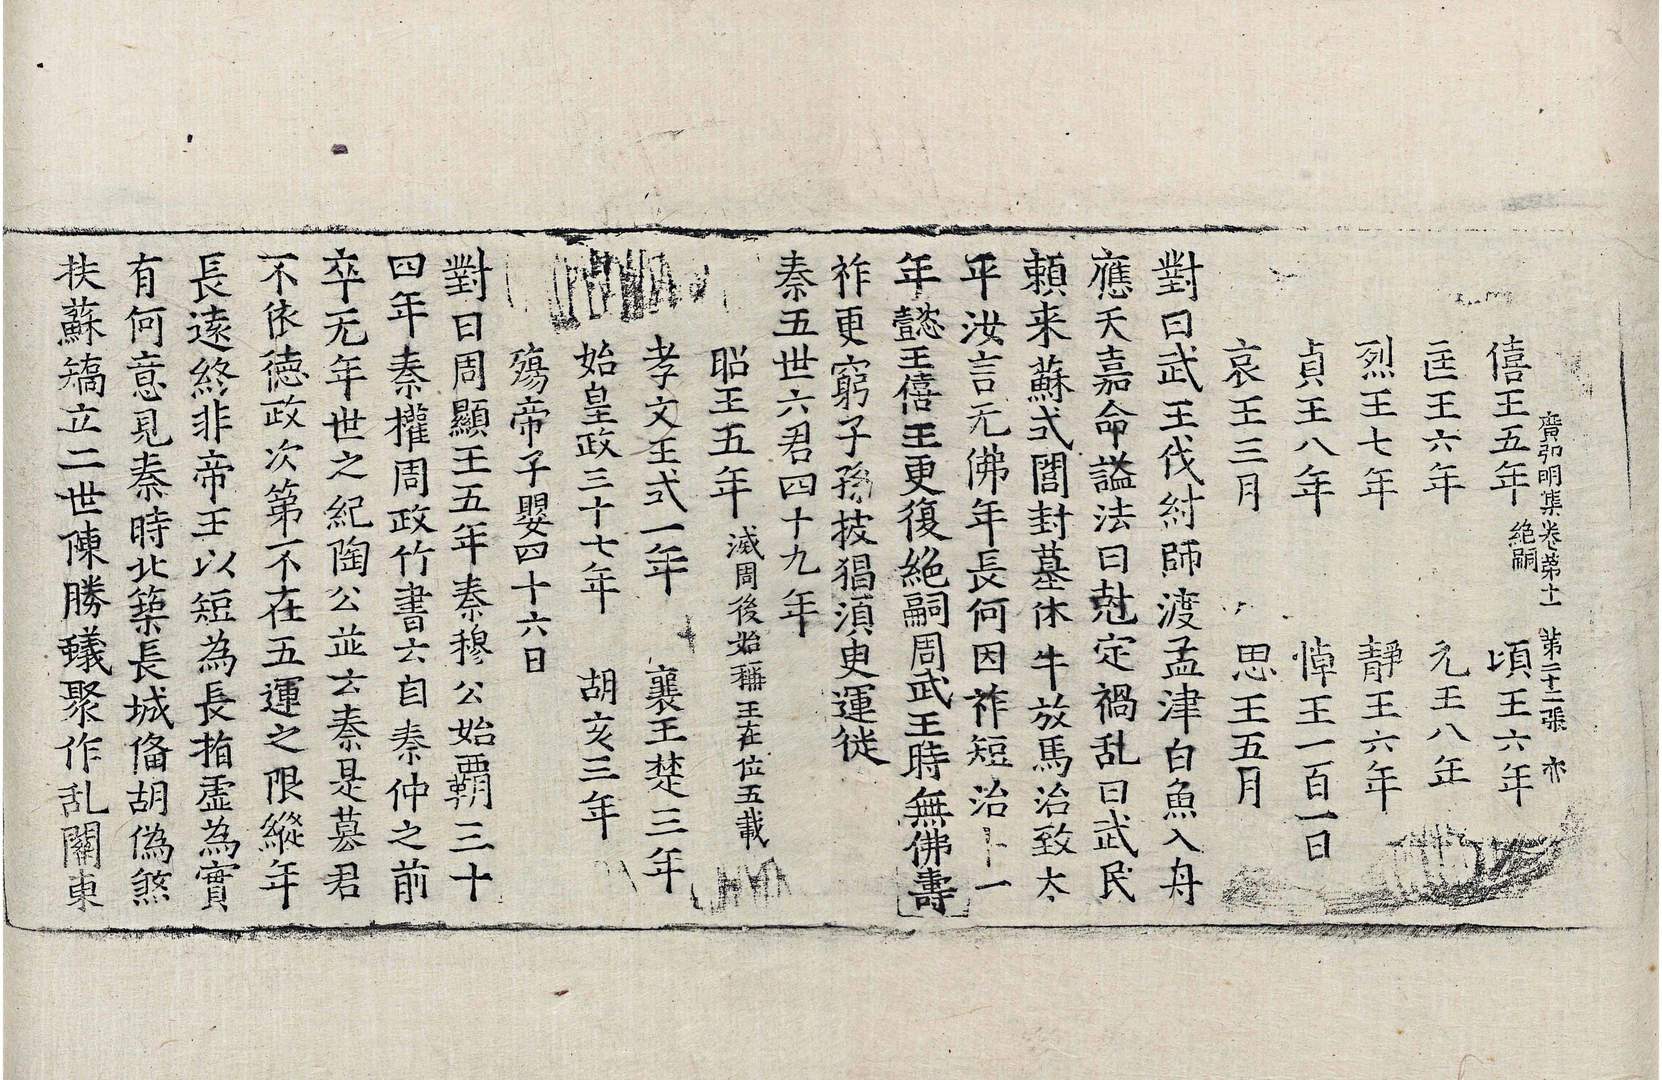 廣弘明集卷第十一 第二十二張 亦
僖王五年絶嗣 頃王六年
匡王六年 元王八年
烈王七年 靜王六年
貞王八年 悼王一百一日
哀王三月 思王五月
對曰武王伐紂師渡孟津白魚入舟
應天嘉命謚法曰尅定禍乱曰武民
頼来蘇式閭封墓休牛放馬治致太
平汝言无佛年長何因祚短治十一
年懿王僖王更復絶嗣周武王時無佛壽
祚更窮子孫披猖湏臾運徙
秦五世六君四十九年
昭王五年滅周後始稱王在位五載
孝文王式一年 襄王楚三年
始皇政三十七年 胡亥三年
殤帝子嬰四十六日
對曰周顯王五年秦穆公始覇三十
四年秦權周政竹書云自秦仲之前
卒无年世之紀陶公並云秦是墓君
不依德政次第不在五運之限縱年
長遠終非帝王以短為長指虛為實
有何意見秦時北築長城俻胡偽煞
扶蘇矯立二世陳勝蟻聚作乱關東